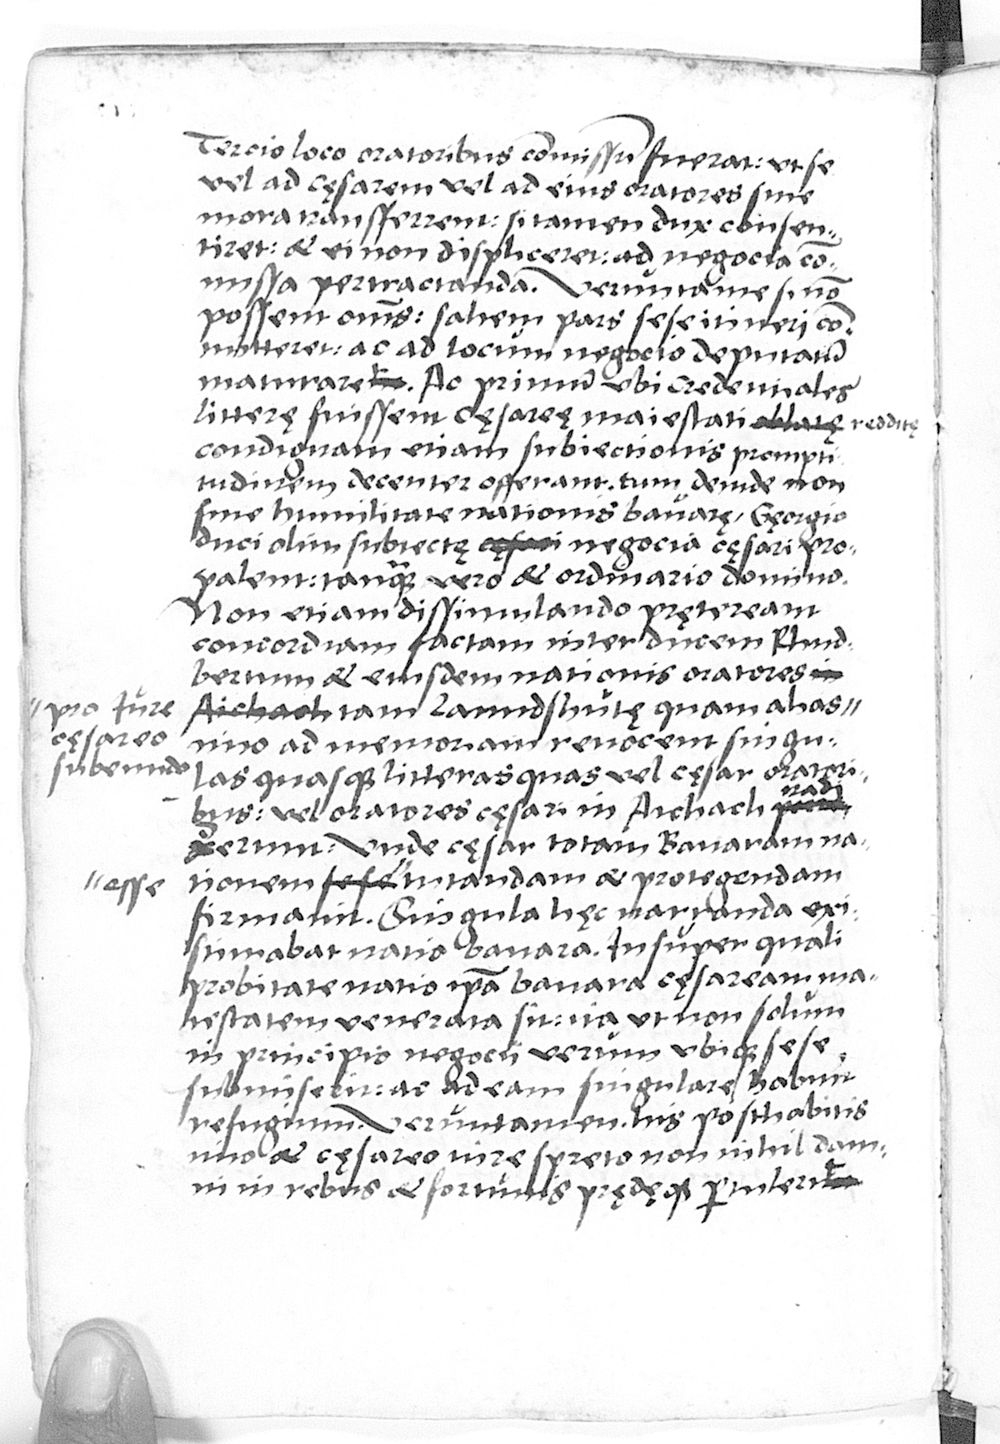 Tercio loco oratoribus cōmissū fuerat: vt se
vel ad cęsarem vel ad eius oratores sine
mora transferrent: si tamen dux consen„
tiret: & ei non displiceret: ad negocia cō„
missa pertractanda. Veruntame si nō
possent om̄s: saltem pars sese itineri cō„
mitteret: ac ad locum negocio deputatū
maturaret. Ac primū vbi credentiales
litterę fuissent Cęsareę maiestati oblatę redditę
condignam etiam subiectionis prompti
tudinem decenter offerant. tum deinde non
sine humilitate nationis bavarę, Gęorgio
duci olim subiectę cęsari negocia cęsari pro„
palent: tanq̃ vero & ordinario domino.
Non etiam dissimulando prętereant
concordiam factam inter ducem Rhud„
bertum & eiusdem nationis oratores in
Aichach tam Lanndshutę quam alias "
" pro Iure
cęsareo
subeundo
imo ad memoriam revocent singu„
las quasq̃ litteras quas vel cęsar oratori„
bus: vel oratores cęsari in Aichach tradi
xerunt: Vnde cęsar totam Bavaram na„
" esse
tionem sese " tutandam & protegendam
firmauit. Singula hęc narranda exi„
stimabat natio bavara. Insuper quali
probitate natio ip̄a bavara cęsaream ma„
iestatem venerata sit: ita vt non solum
in principio negocii verum vbiq̃ sese
submiserit: ac ad eam singularę habuit
refugium. Veruntamen his posthabitis
imo & cęsareo iure spreto non nihil dam„
ni in rebus & fortunis prędęq̃ ꝑtulerit